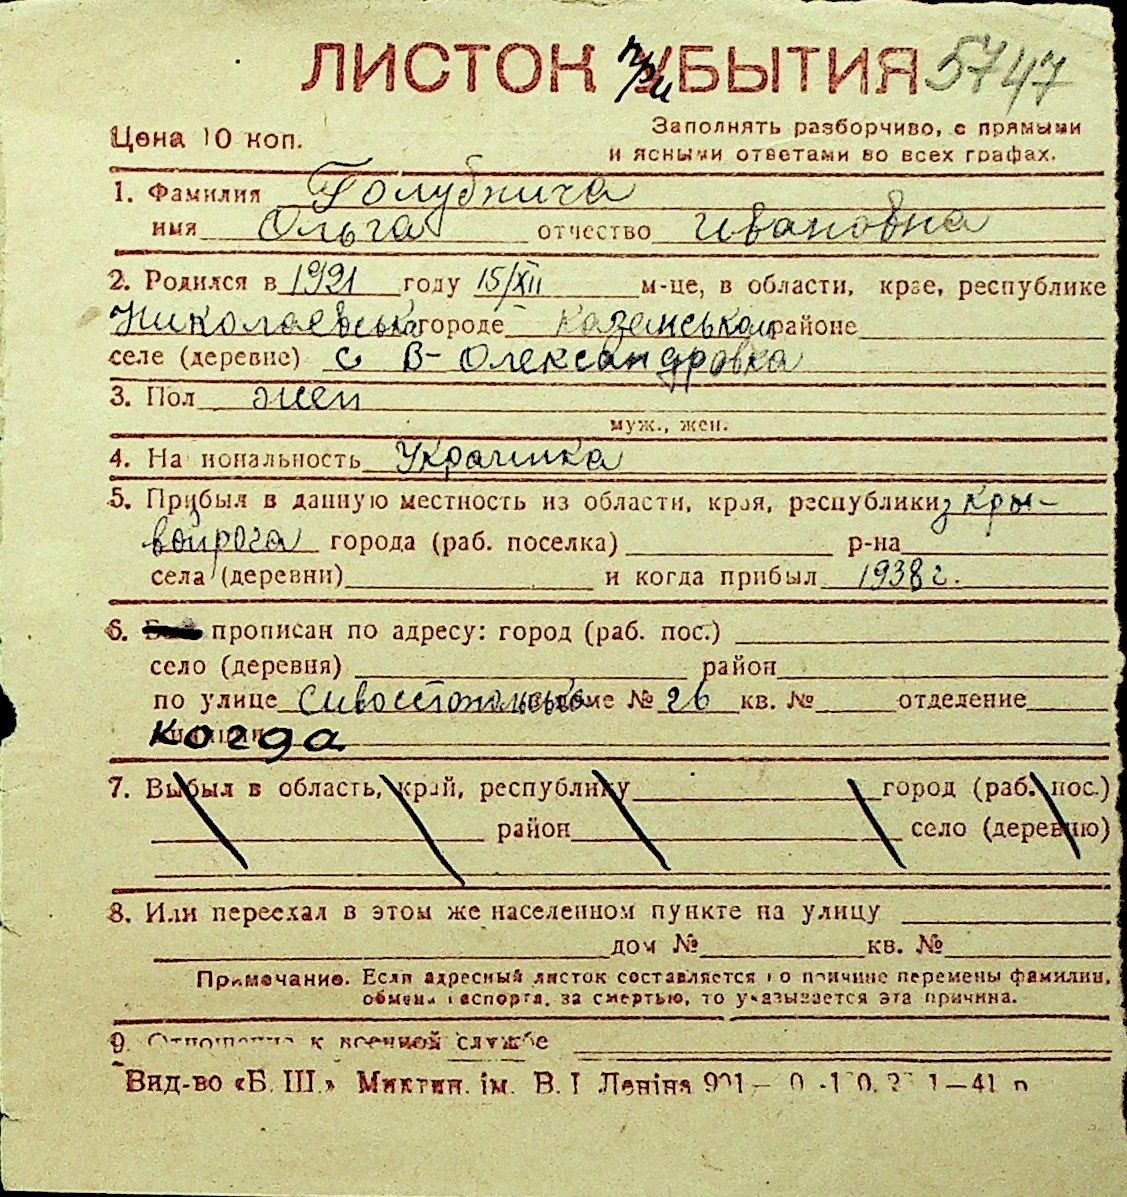 ЛИСТОК приБЫТИЯ 5747
Цена 10 коп.
Заполнять разборчиво, с прямыми
и ясными ответами во всех графах.
1. Фамилия Голубнича
имя Ольга отчество Ивановна
2. Родился в 1921 году 15/XII м-це, в области, крае, республике
Николаевська городе Казанськом районе
селе (деревне) с В-Олександровка
3. Пол жен
муж., жен.
4. Национальность Украинка
5. Прибыл в данную местность из области, края, республики з Кры-
войрога города (раб. поселка) р-на
села (деревни) и когда прибыл 1938 г.
6. прописан по адресу: город (раб. пос.)
село (деревня) район
по улице Сивостопольська доме № 26 кв. № отделение
когда
7. Выбыл в область, край, республику город (раб. пос.)
район село (деревню)
8. Или переехал в этом же населенном пункте на улицу
дом № кв. №
Примечание. Если адресный листок составляется по причине перемены фамилии,
обмена паспорта, за смертью, то указывается эта причина.
9. Отношение к военной службе
Вид-во «Б. Ш.» Миктип. ім. В. І Леніна